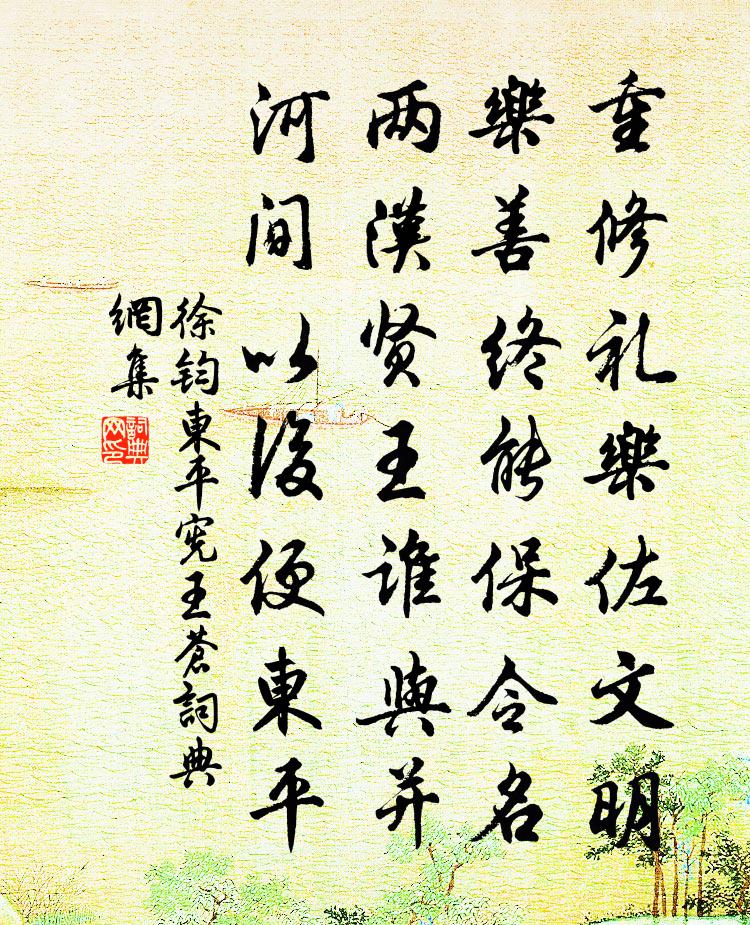 重修礼樂佐文明
樂善终能保令名
两漢贤王谁與并
河间以後便東平
徐钧東平宪王蒼詞典
網集
詞典
网印